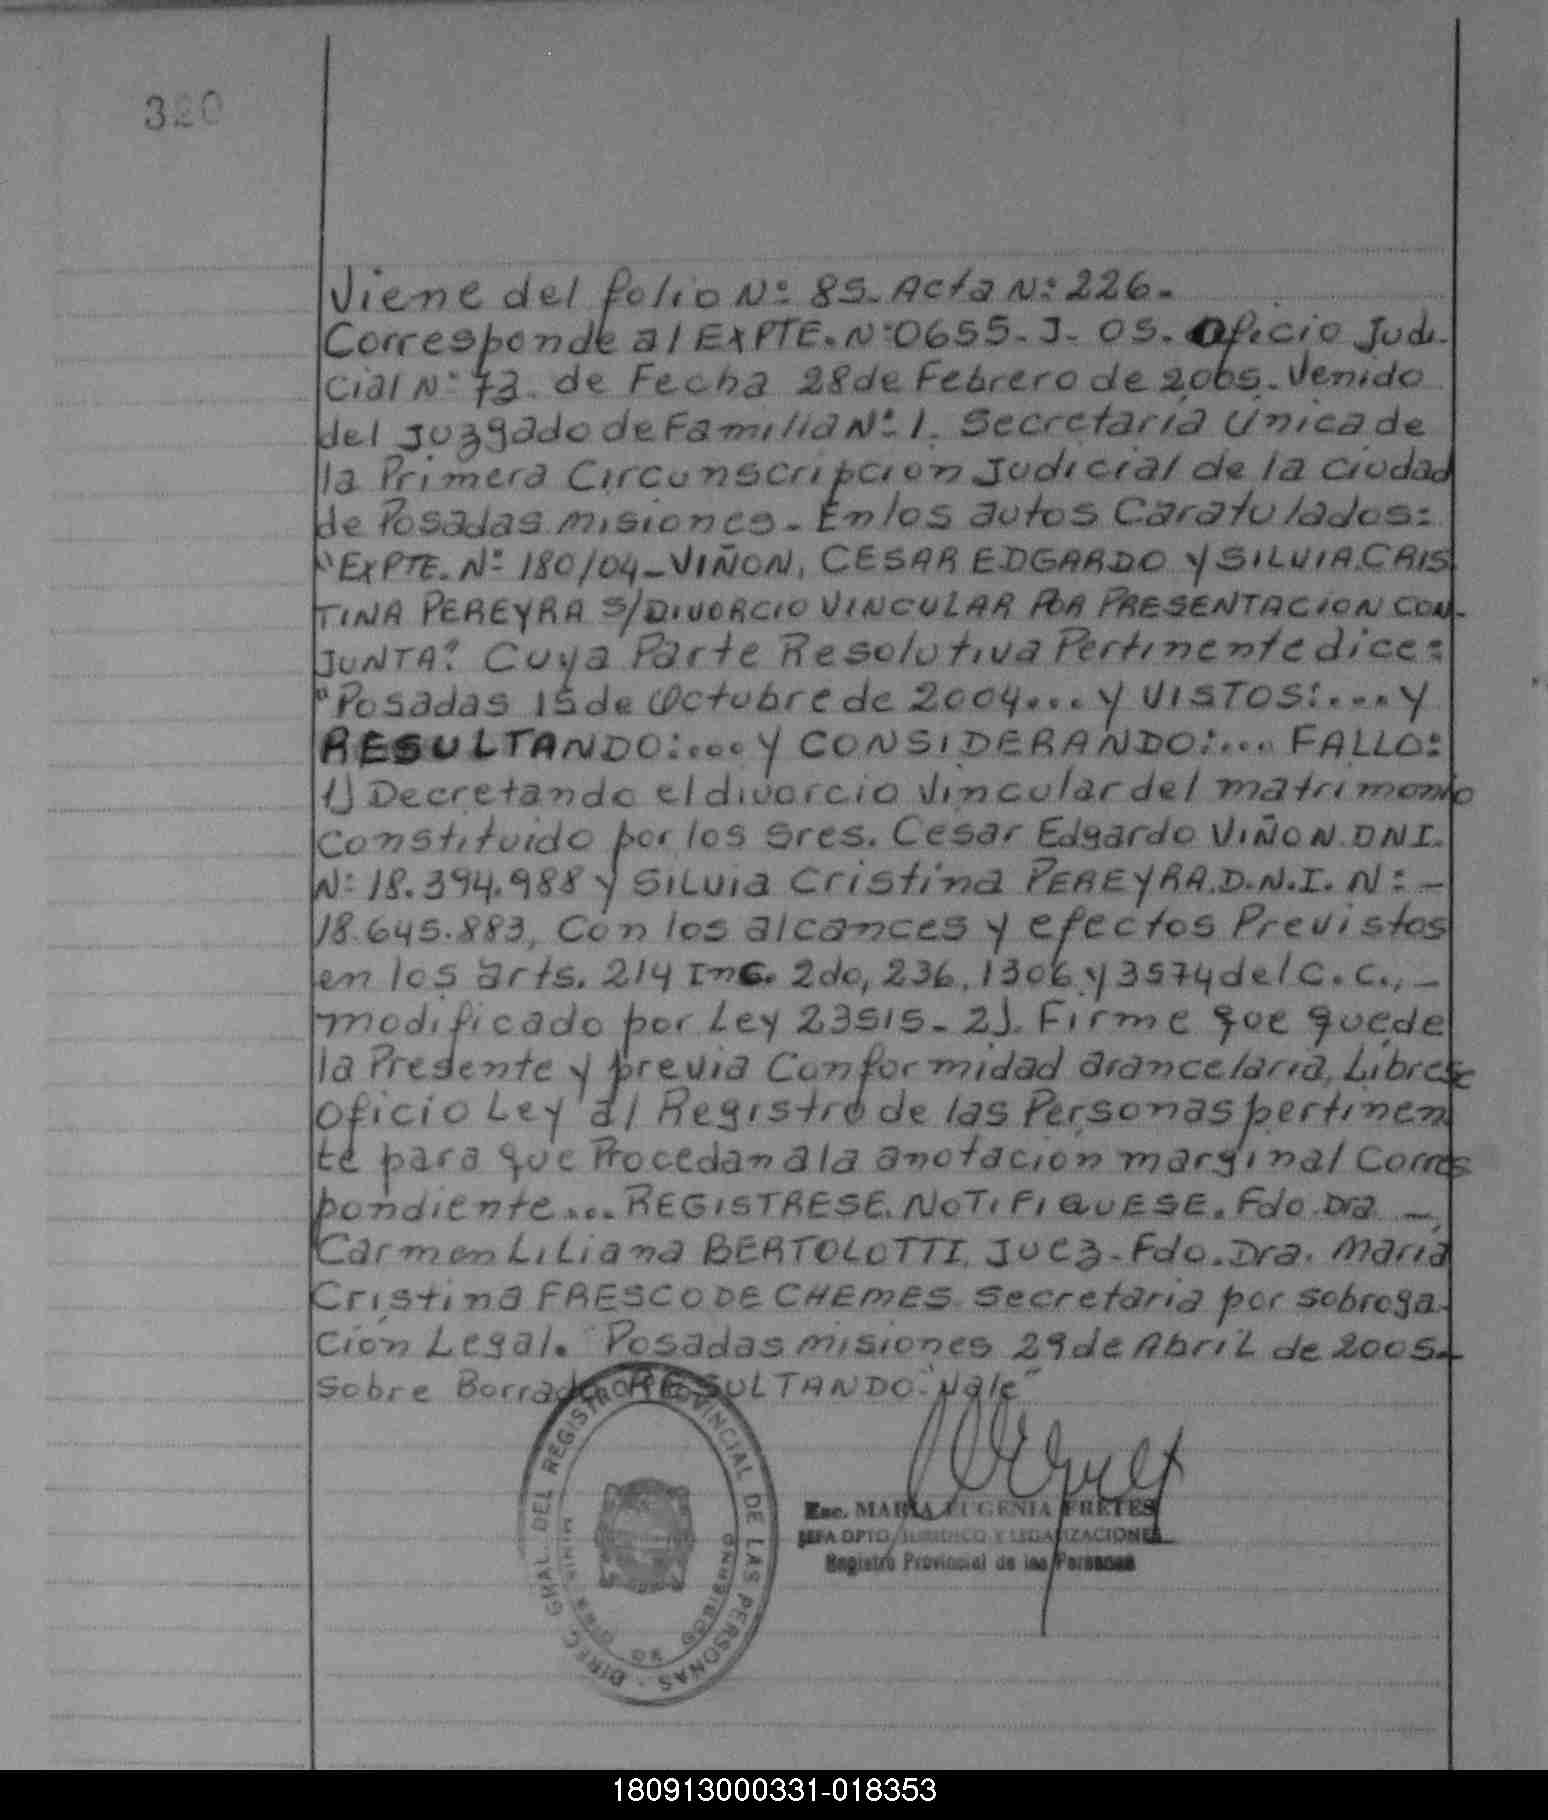 320
Viene del folio Nº 85. Acta Nº 226.
Corresponde al EXPTE. Nº 0655. J. 05. Oficio Judi-
cial Nº 73. de Fecha 28 de Febrero de 2005. Venido
del Juzgado de Familia Nº 1. Secretaría Única de
la Primera Circunscripcion Judicial de la Ciudad
de Posadas Misiones. En los autos Caratulados:
"EXPTE. Nº 180/04 - VIÑON, CESAR EDGARDO Y SILVIA CRIS
TINA PEREYRA S/DIVORCIO VINCULAR POR PRESENTACION CON-
JUNTA". Cuya Parte Resolutiva Pertinente dice:
"Posadas 15 de Octubre de 2004.... y VISTOS:.... y
RESULTANDO:.... y CONSIDERANDO:.... FALLO:
1) Decretando el divorcio Vincular del matrimonio
Constituido por los Sres. Cesar Edgardo VIÑON. DNI.
Nº 18.394.988 y Silvia Cristina PEREYRA. D.N.I. Nº -
18.645.883, Con los alcances y efectos Previstos
en los arts. 214 Inc. 2do, 236, 1306 y 3574 del C.C., -
modificado por Ley 23515. 2). Firme que quede
la Presente y previa Conformidad arancelaria, Librese
Oficio Ley al Registro de las Personas pertinen
te para que Procedan a la anotación marginal Corres
pondiente.... REGISTRESE. NOTIFIQUESE. Fdo. Dra -
Carmen Liliana BERTOLOTTI, Juez. Fdo. Dra. María
Cristina FRESCO DE CHEMES. Secretaria por sobroga-
ción Legal. Posadas Misiones 29 de Abril de 2005.
Sobre Borrado RESULTANDO "Vale"
DIREC. GRAL. DEL REGISTRO PROVINCIAL DE LAS PERSONAS
DE GOBIERNO
Esc. MARIA EUGENIA FRETES
JEFA DPTO. JURIDICO Y LEGALIZACIONES
Registro Provincial de las Personas
180913000331-018353